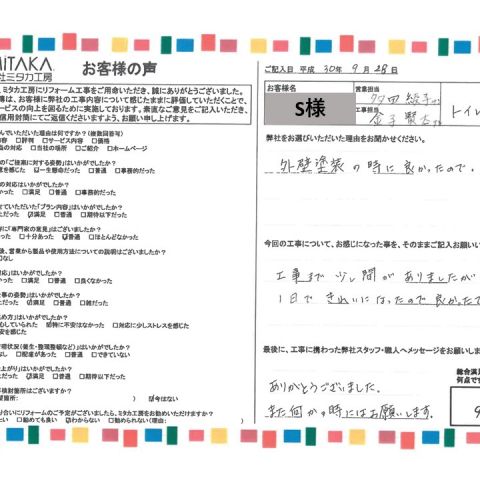 MITAKA
社ミタカ工房
お客様の声
、ミタカ工房にリフォーム工事をご用命いただき、誠にありがとうございました。
簿は、お客様に弊社の工事内容について感じたままに評価していただくことで、
ービスの向上を図るために実施しております。素直なご意見をご記入いただき、
信用封筒にてご返信くださいますよう、お願い申し上げます。
んでいただいた理由は何ですか?(複数回答可)
内容 □評判 □サービス内容 □価格
品の対応 □当社の場所 □ご紹介 □ホームページ
のご提案に対する姿勢」はいかがでしたか?
を感じた ☑一生懸命だった □普通 □事務的だった
の対応はいかがでしたか?
かった □満足 □普通 □事務的だった
せていただいた「プラン内容」はいかがでしたか?
だった ☑満足 □普通 □期待以下だった
に「専門家の意見」はございましたか?
った □十分あった ☑普通 □ほとんどなかった
後、営業から製品や使用方法についての説明はございましたか?
□なし
対応」はいかがでしたか?
だった ☑満足 □普通 □良くなかった
仕事の姿勢」はいかがでしたか?
だった ☑満足 □普通 □雑だった
め方」はいかがでしたか?
心していられた □特に不安はなかった □対応に少しストレスを感じた
安を感じた
理状況(養生・整理整頓など)」はいかがでしたか?
なし □配慮があった □できていない
がり」はいかがでしたか?
上だった ☑満足 □普通 □期待以下だった
検討箇所はございますか?
箇所: ) ☑今はない
り合いにリフォームのご予定がございましたら、ミタカ工房をお勧めいただけますか?
たい □勧めても良い ☑わからない □勧められない(理由: )
ご記入日 平成 30年 9月 28日
お客様名
S様
営業担当
多田 綾子
工事担当
金子 賢太
トイレ
弊社をお選びいただいた理由をお聞かせください。
外壁塗装の時に良かったので。
今回の工事について、お感じになった事を、そのままご記入お願い
工事まで少し間がありましたが
1日できれいになったので良かったで
最後に、工事に携わった弊社スタッフ・職人へメッセージをお願いしま
ありがとうございました。
また何かの時にはお願いします。
総合満足
何点です
9